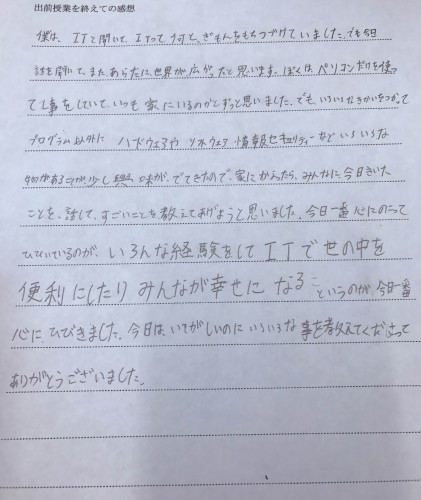 出前授業を終えての感想
僕は、ITと聞いて、ITって何と、ぎもんをもちつづけていました。でも今日
話を聞いて、また、あらたに、世界が広がったと思います。ぼくは、パソコンだけを使っ
て仕事をしていて、いつも家にいるのかとずっと思いました。でも、いろいろなきかいをつかって
プログラム以外に ハードウェアや ソフトウェア 情報セキュリティーなど いろいろな
物があることが、少し興味が、でてきたので、家にかえったら、みんなに、今日きいた
ことを、話して、すごいことを教えてあげようと思いました。今日一番心にのこって
ひびいているのが、いろんな経験をして ITで世の中を
便利にしたり みんなが幸せに なること
というのが、今日一番
心に、ひびきました。今日は、いそがしいのに いろいろな 事を教えてくださって
ありがとうございました。